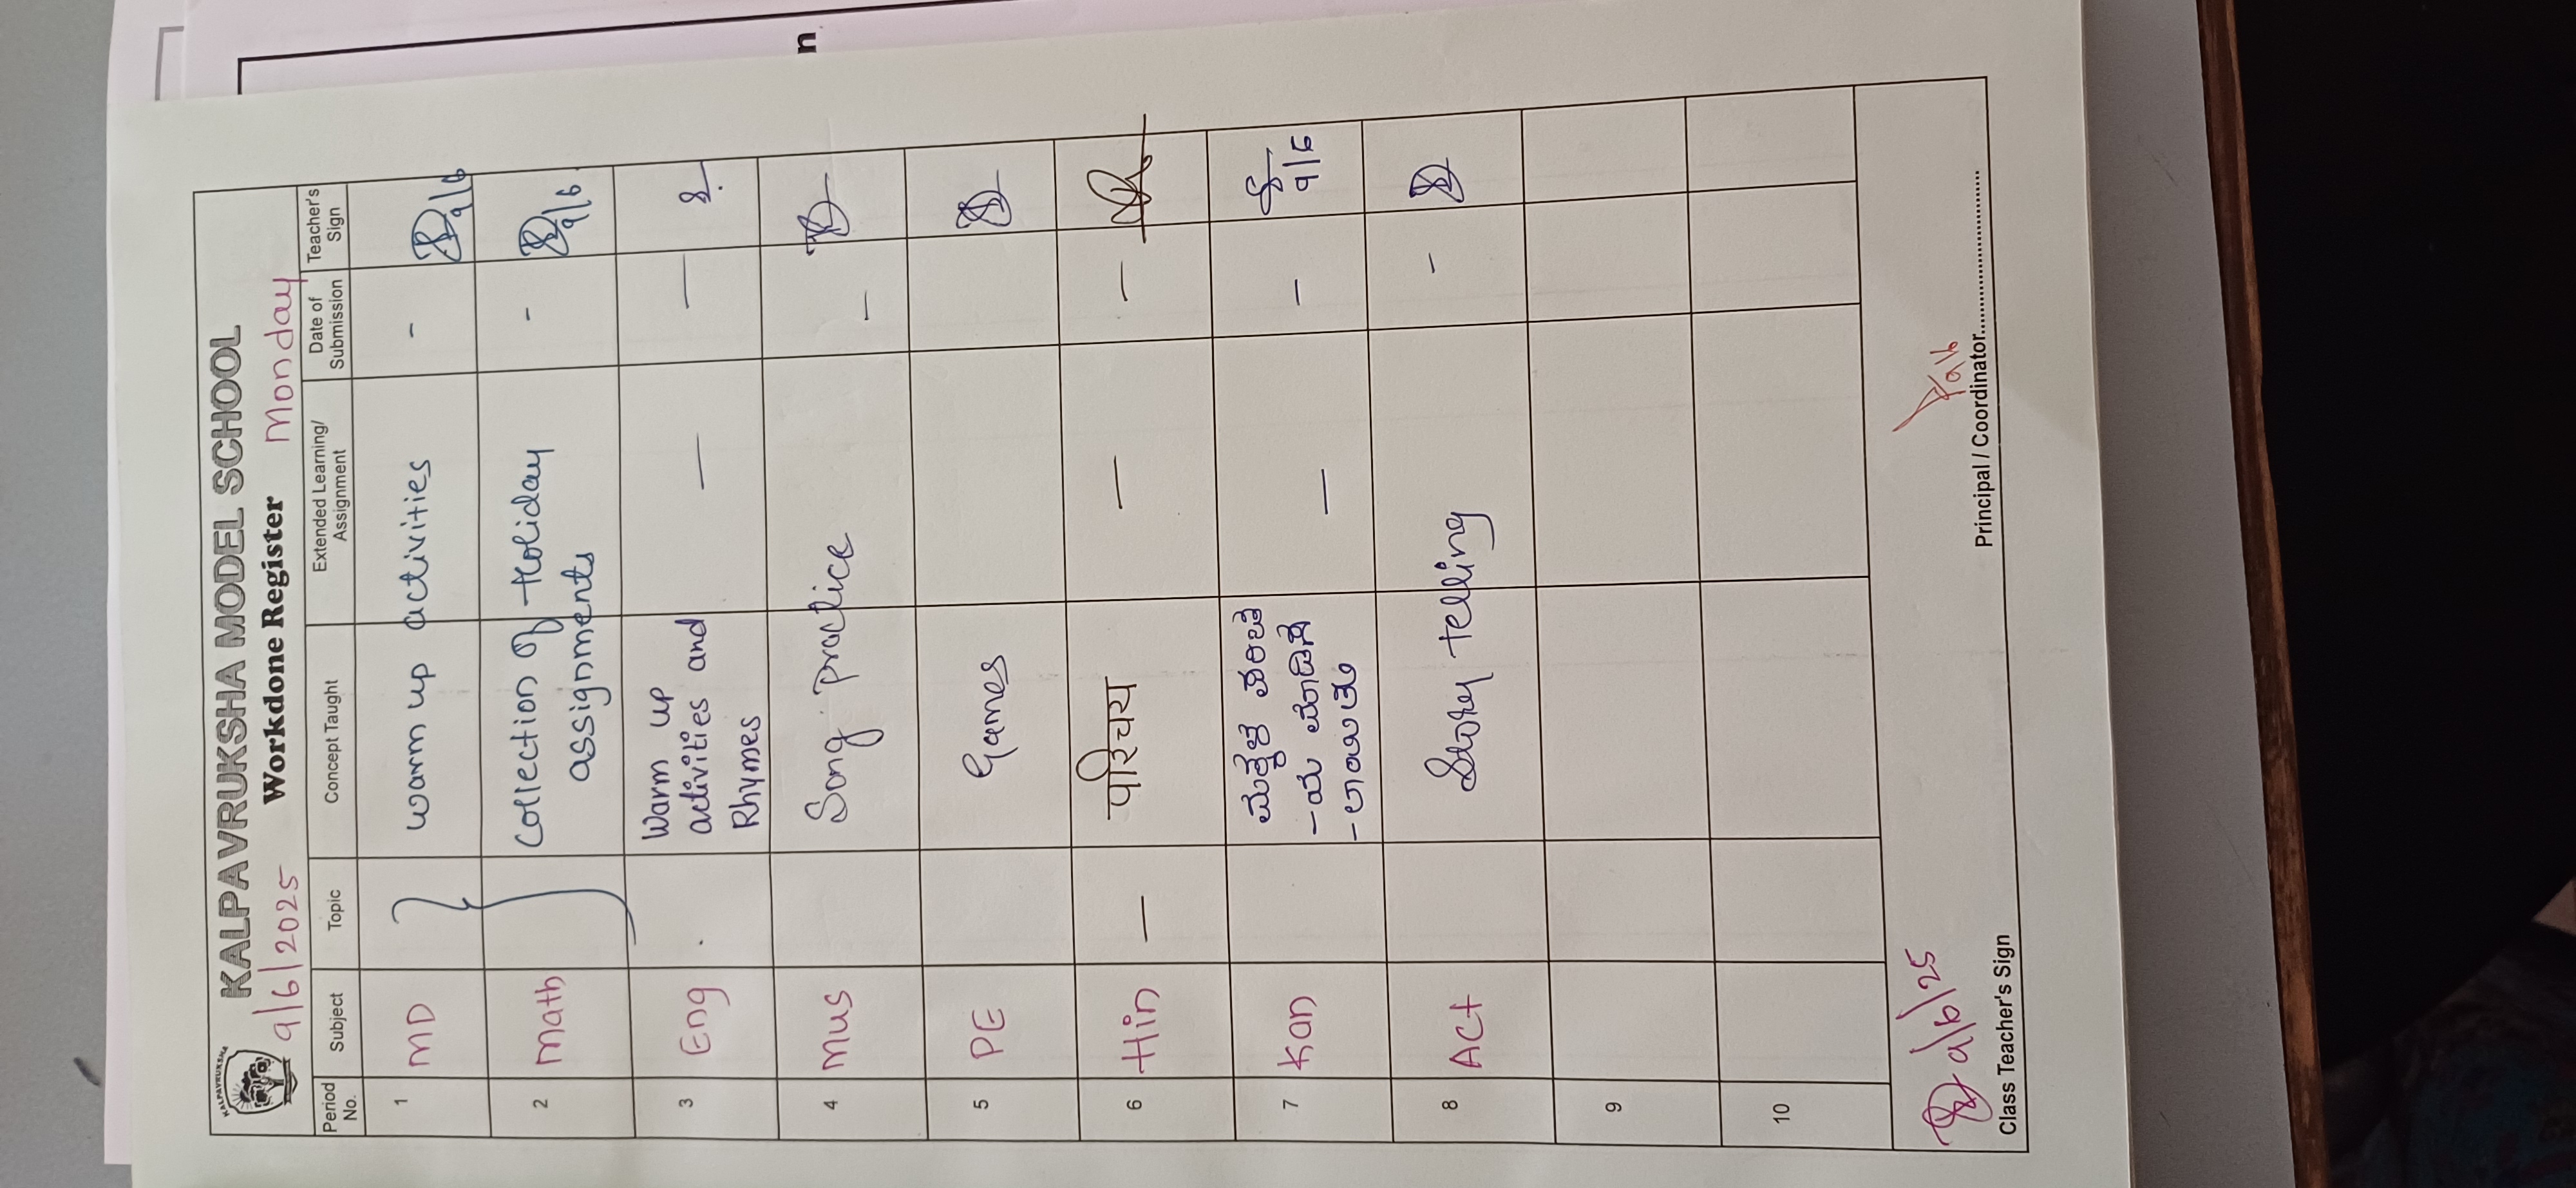 KALPAVRUKSHA
KALPAVRUKSHA MODEL SCHOOL
9/6/2025 Workdone Register Monday
Period No. Subject Topic Concept Taught Extended Learning/ Assignment Date of Submission Teacher's Sign
1 MD } warm up activities - 9/6
2 Math } collection of Holiday - 9/6
assignments
3 Eng . Warm up — —
activities and
Rhymes
4 Mus Song practice —
5 PE Games
6 Hin — परिचय — —
7 Kan ಮಕ್ಕಳ — - 9/6
8 ACt Story telling -
9
10
9/6/25 9/6
Class Teacher's Sign Principal / Coordinator
n